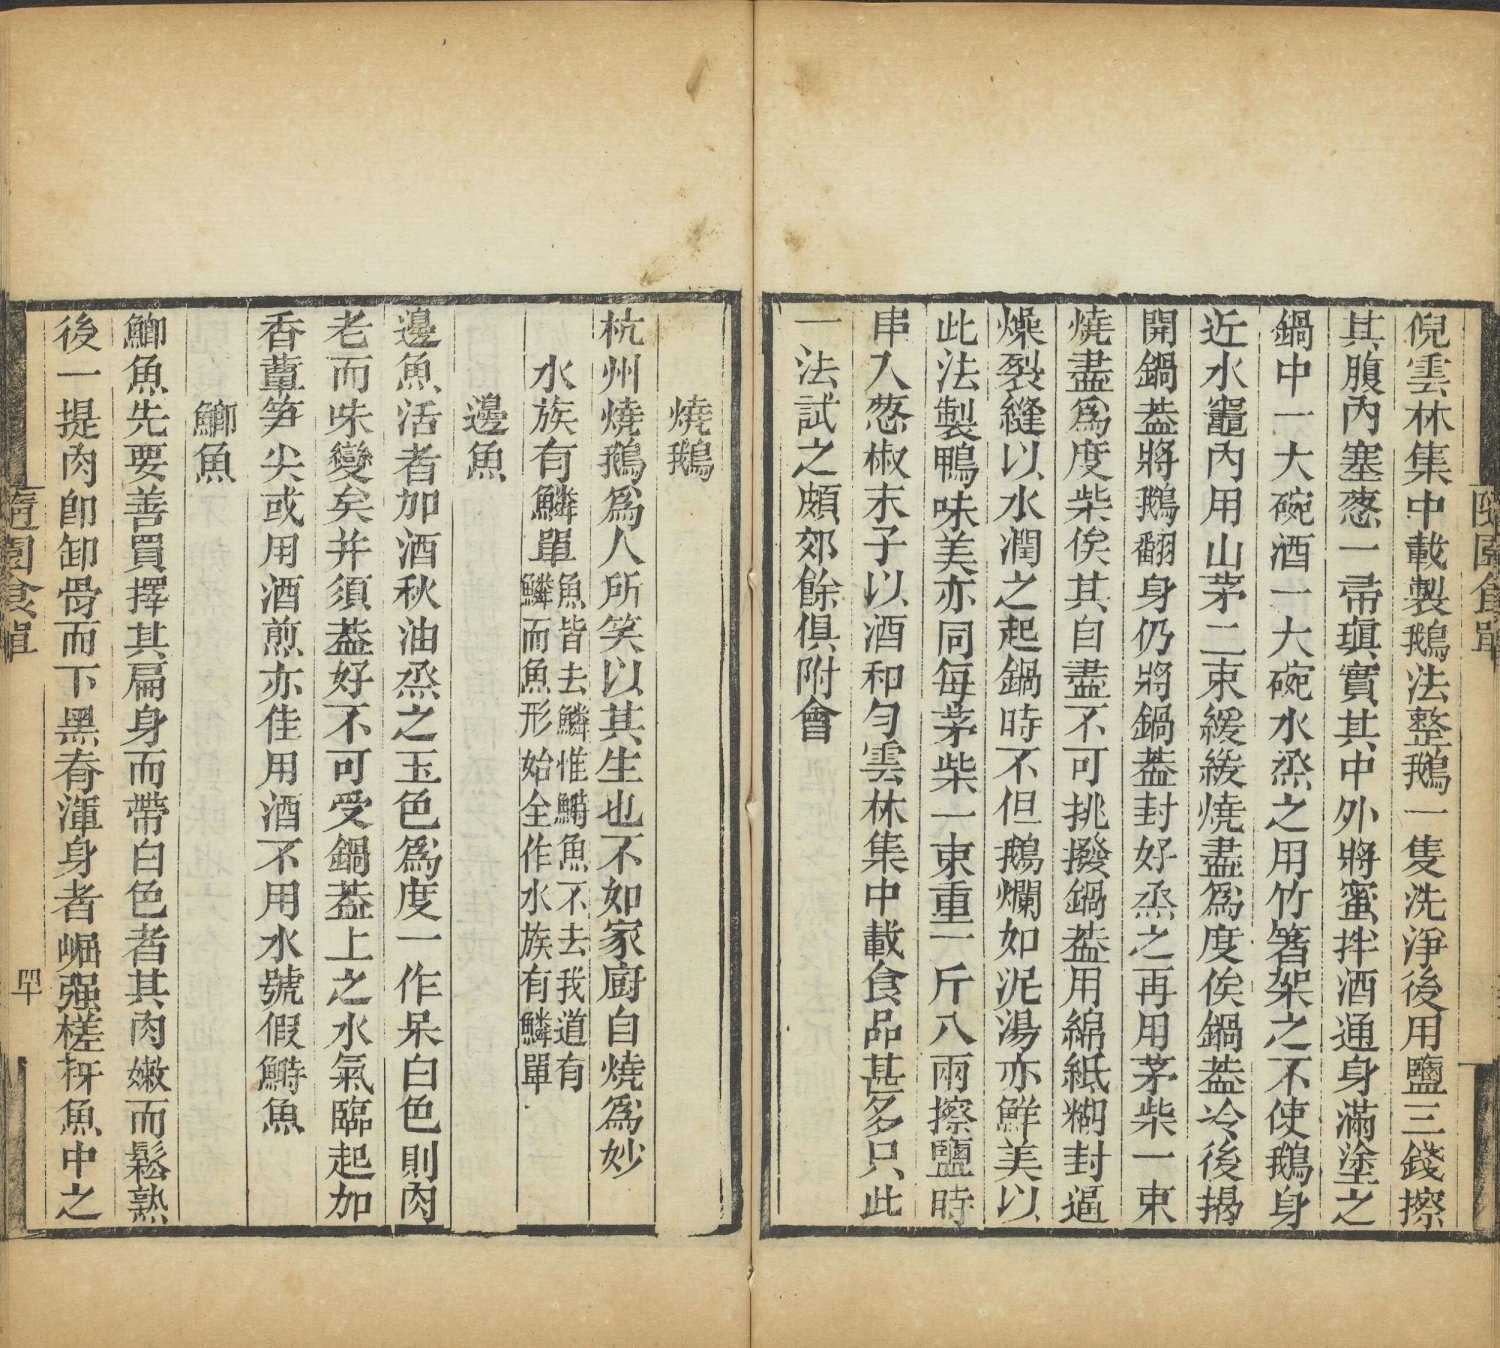 倪雲林集中載製鵝法整鵝一隻洗淨後用鹽三錢擦
其腹內塞葱一帚瑱實其中外將蜜拌酒通身滿塗之
鍋中一大碗酒一大碗水烝之用竹箸架之不使鵝身
近水竈內用山茅二束緩緩燒盡爲度俟鍋葢冷後揭
開鍋葢將鵝翻身仍將鍋葢封好烝之再用茅柴一束
燒盡爲度柴俟其自盡不可挑撥鍋葢用綿紙糊封逼
燥裂縫以水潤之起鍋時不但鵝爛如泥湯亦鮮美以
此法製鴨味美亦同每茅柴一束重一斤八兩擦鹽時
串入葱椒末子以酒和勻雲林集中載食品甚多只此
一法試之頗郊餘俱附會
燒鵝
杭州燒鵝爲人所笑以其生也不如家廚自燒爲妙
水族有鱗單
魚皆去鱗惟鰣魚不去我道有
鱗而魚形始全作水族有鱗單
邊魚
邊魚活者加酒秋油烝之玉色爲度一作呆白色則肉
老而味變矣并須葢好不可受鍋葢上之水氣臨起加
香蕈笋尖或用酒煎亦佳用酒不用水號假鰣魚
鯽魚
鯽魚先要善買擇其扁身而帶白色者其肉嫩而鬆熟
後一提肉卽卸骨而下黑脊渾身者崛强槎枒魚中之
隨園食單
四十